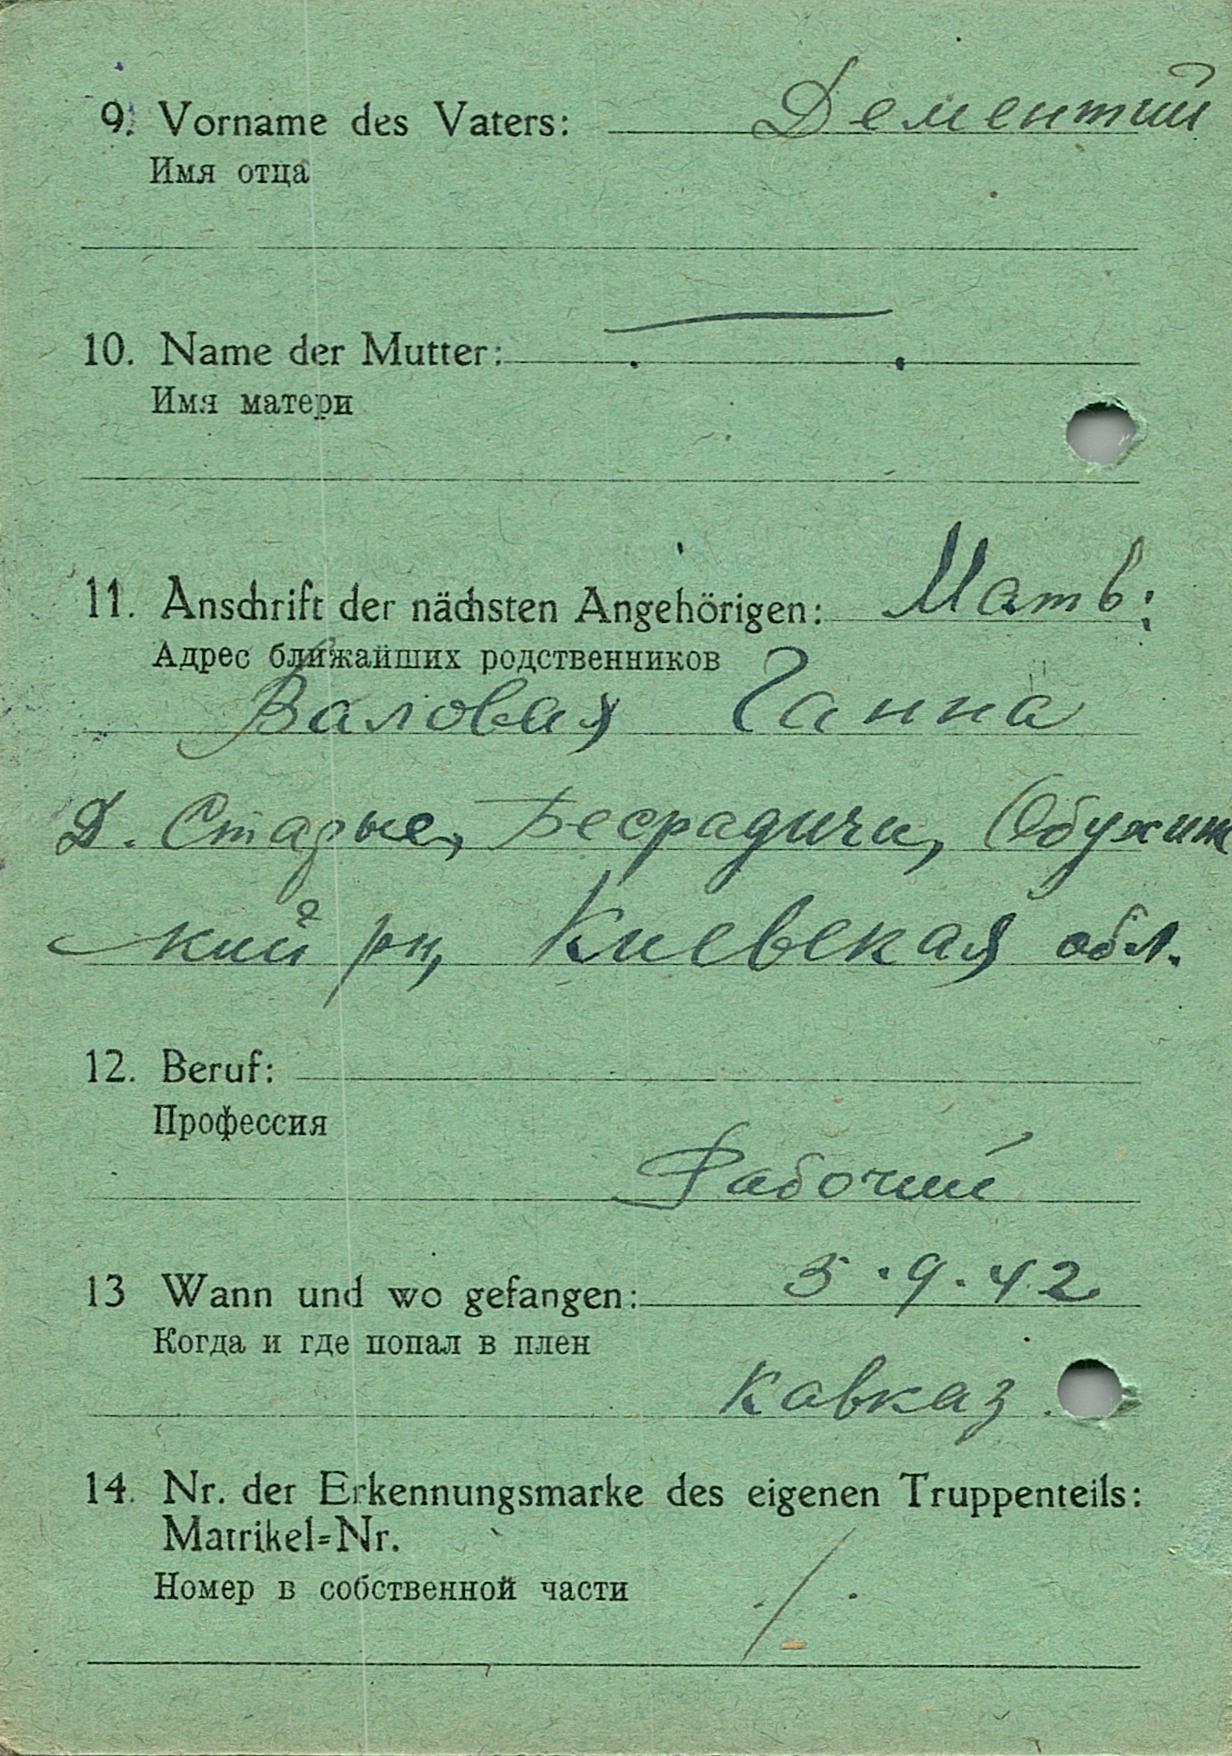 9. Vorname des Vaters: Дементий
Имя отца
10. Name der Mutter:
Имя матери
11. Anschrift der nächsten Angehörigen: Матв:
Адрес ближайших родственников
Валовая Ганна
Д. Старые, Бесрадичи, Обухив
кий рн, Киевская обл.
12. Beruf:
Профессия
Рабочий
13 Wann und wo gefangen: 5.9.42
Когда и где попал в плен
Кавказ
14. Nr. der Erkennungsmarke des eigenen Truppenteils:
Matrikel=Nr.
Номер в собственной части